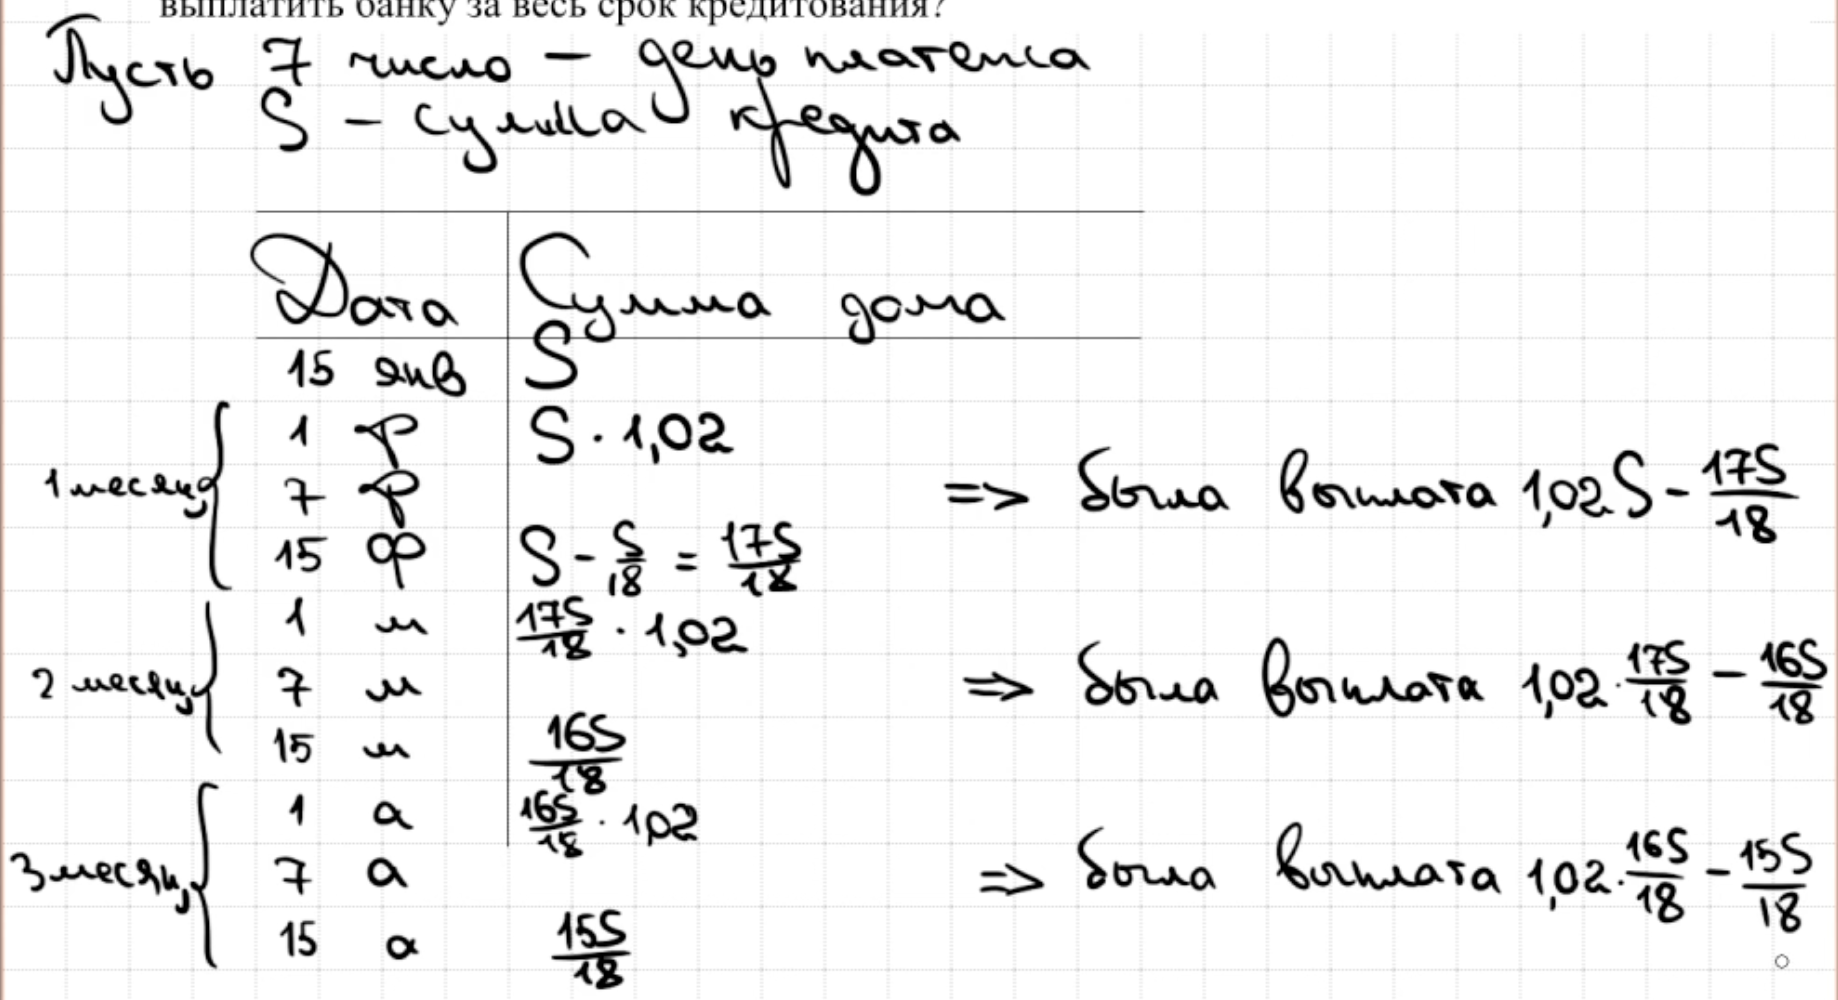 выплатить банку за весь срок кредитования?
Пусть 7 число – день платежа
S – сумма кредита
Дата Сумма долга
15 янв S
1 ф S · 1,02
1 месяц 7 ф => была выплата 1,02S - 17S/18
15 ф S - S/18 = 17S/18
1 м 17S/18 · 1,02
2 месяц 7 м => была выплата 1,02 · 17S/18 - 16S/18
15 м 16S/18
1 а 16S/18 · 1,02
3 месяц 7 а => была выплата 1,02 · 16S/18 - 15S/18
15 а 15S/18